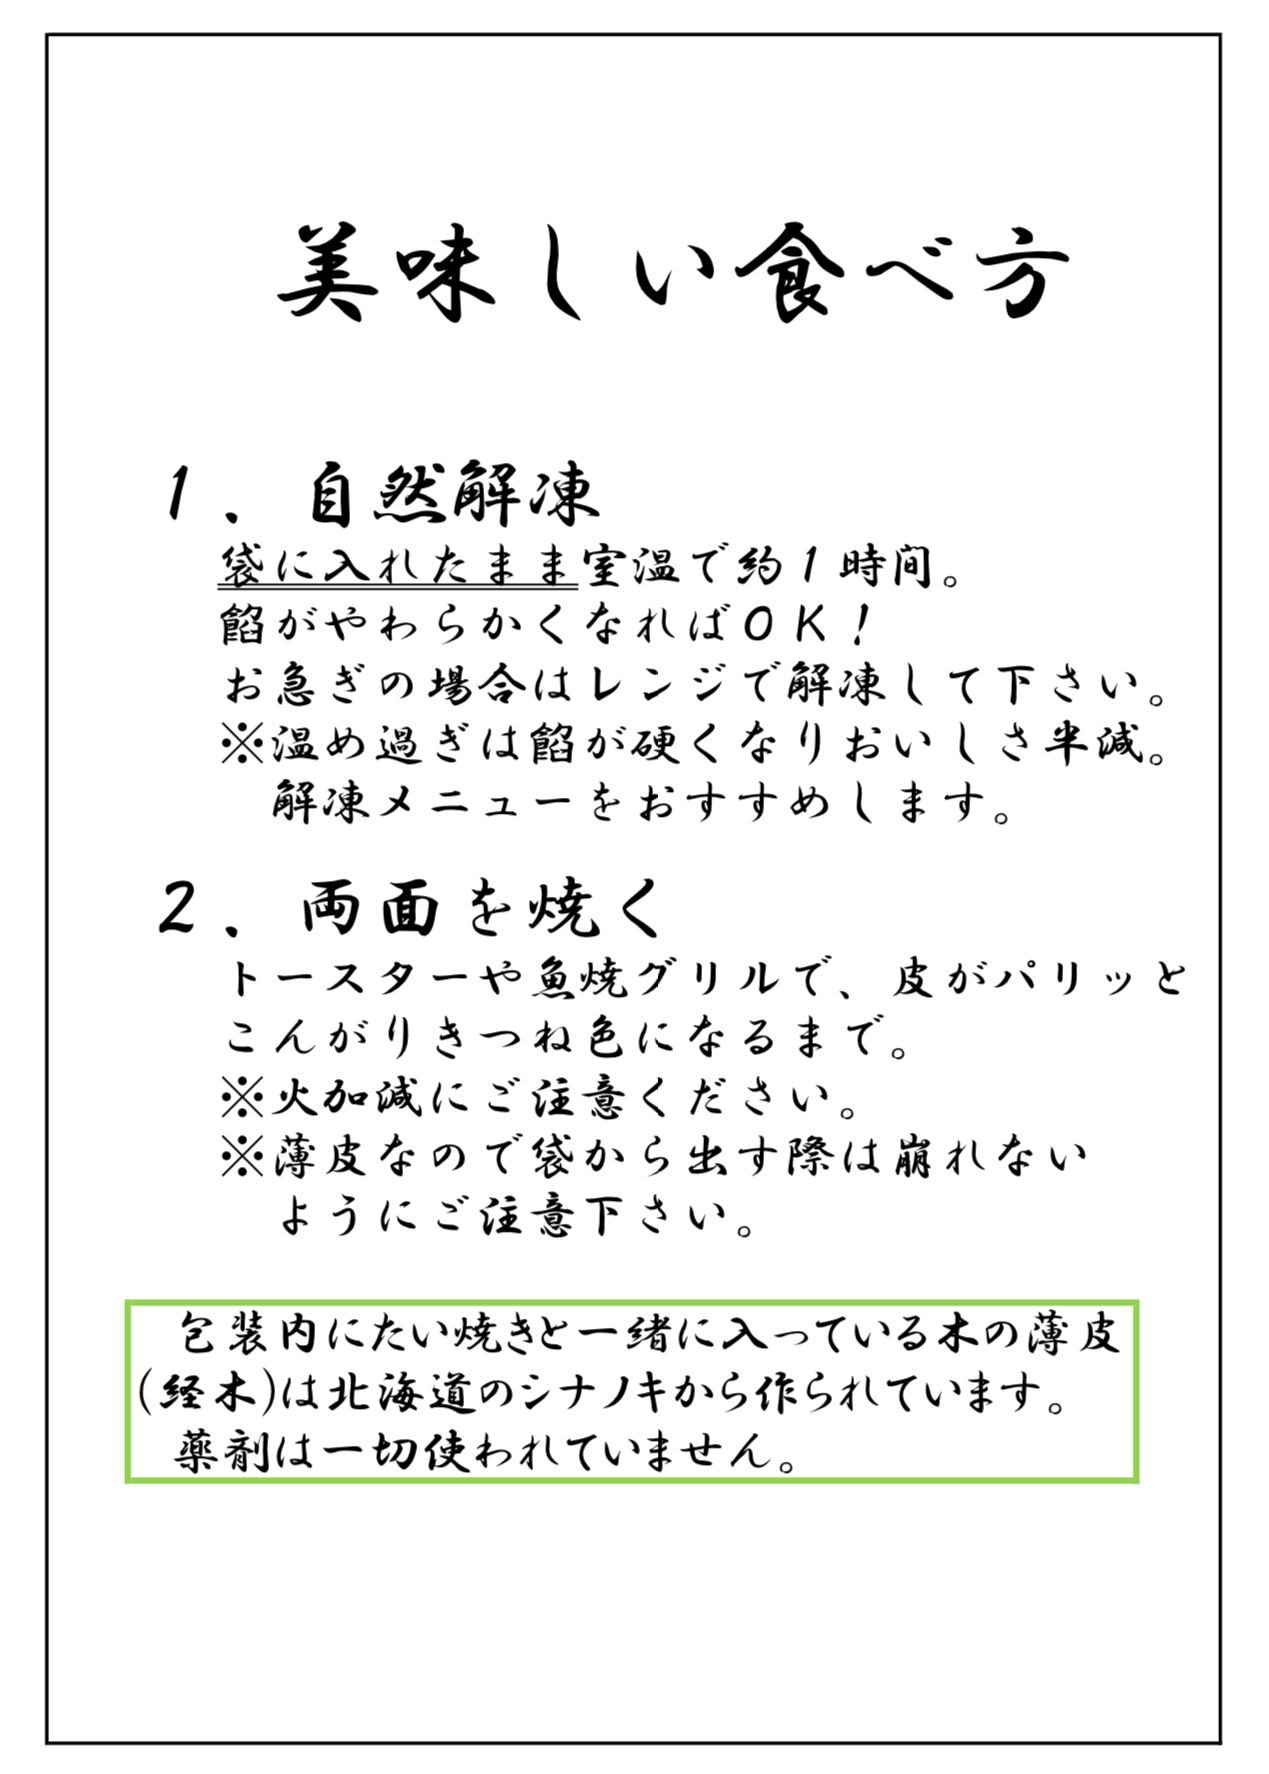 美味しい食べ方
１．自然解凍
袋に入れたまま室温で約１時間。
餡がやわらかくなればＯＫ！
お急ぎの場合はレンジで解凍して下さい。
※温め過ぎは餡が硬くなりおいしさ半減。
解凍メニューをおすすめします。
２．両面を焼く
トースターや魚焼グリルで、皮がパリッと
こんがりきつね色になるまで。
※火加減にご注意ください。
※薄皮なので袋から出す際は崩れない
ようにご注意下さい。
包装内にたい焼きと一緒に入っている木の薄皮
(経木)は北海道のシナノキから作られています。
薬剤は一切使われていません。